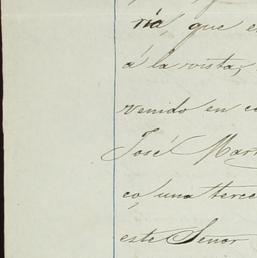 ria, que e
á la vista,
venido en co
José Mar
co, una terce
este Señor